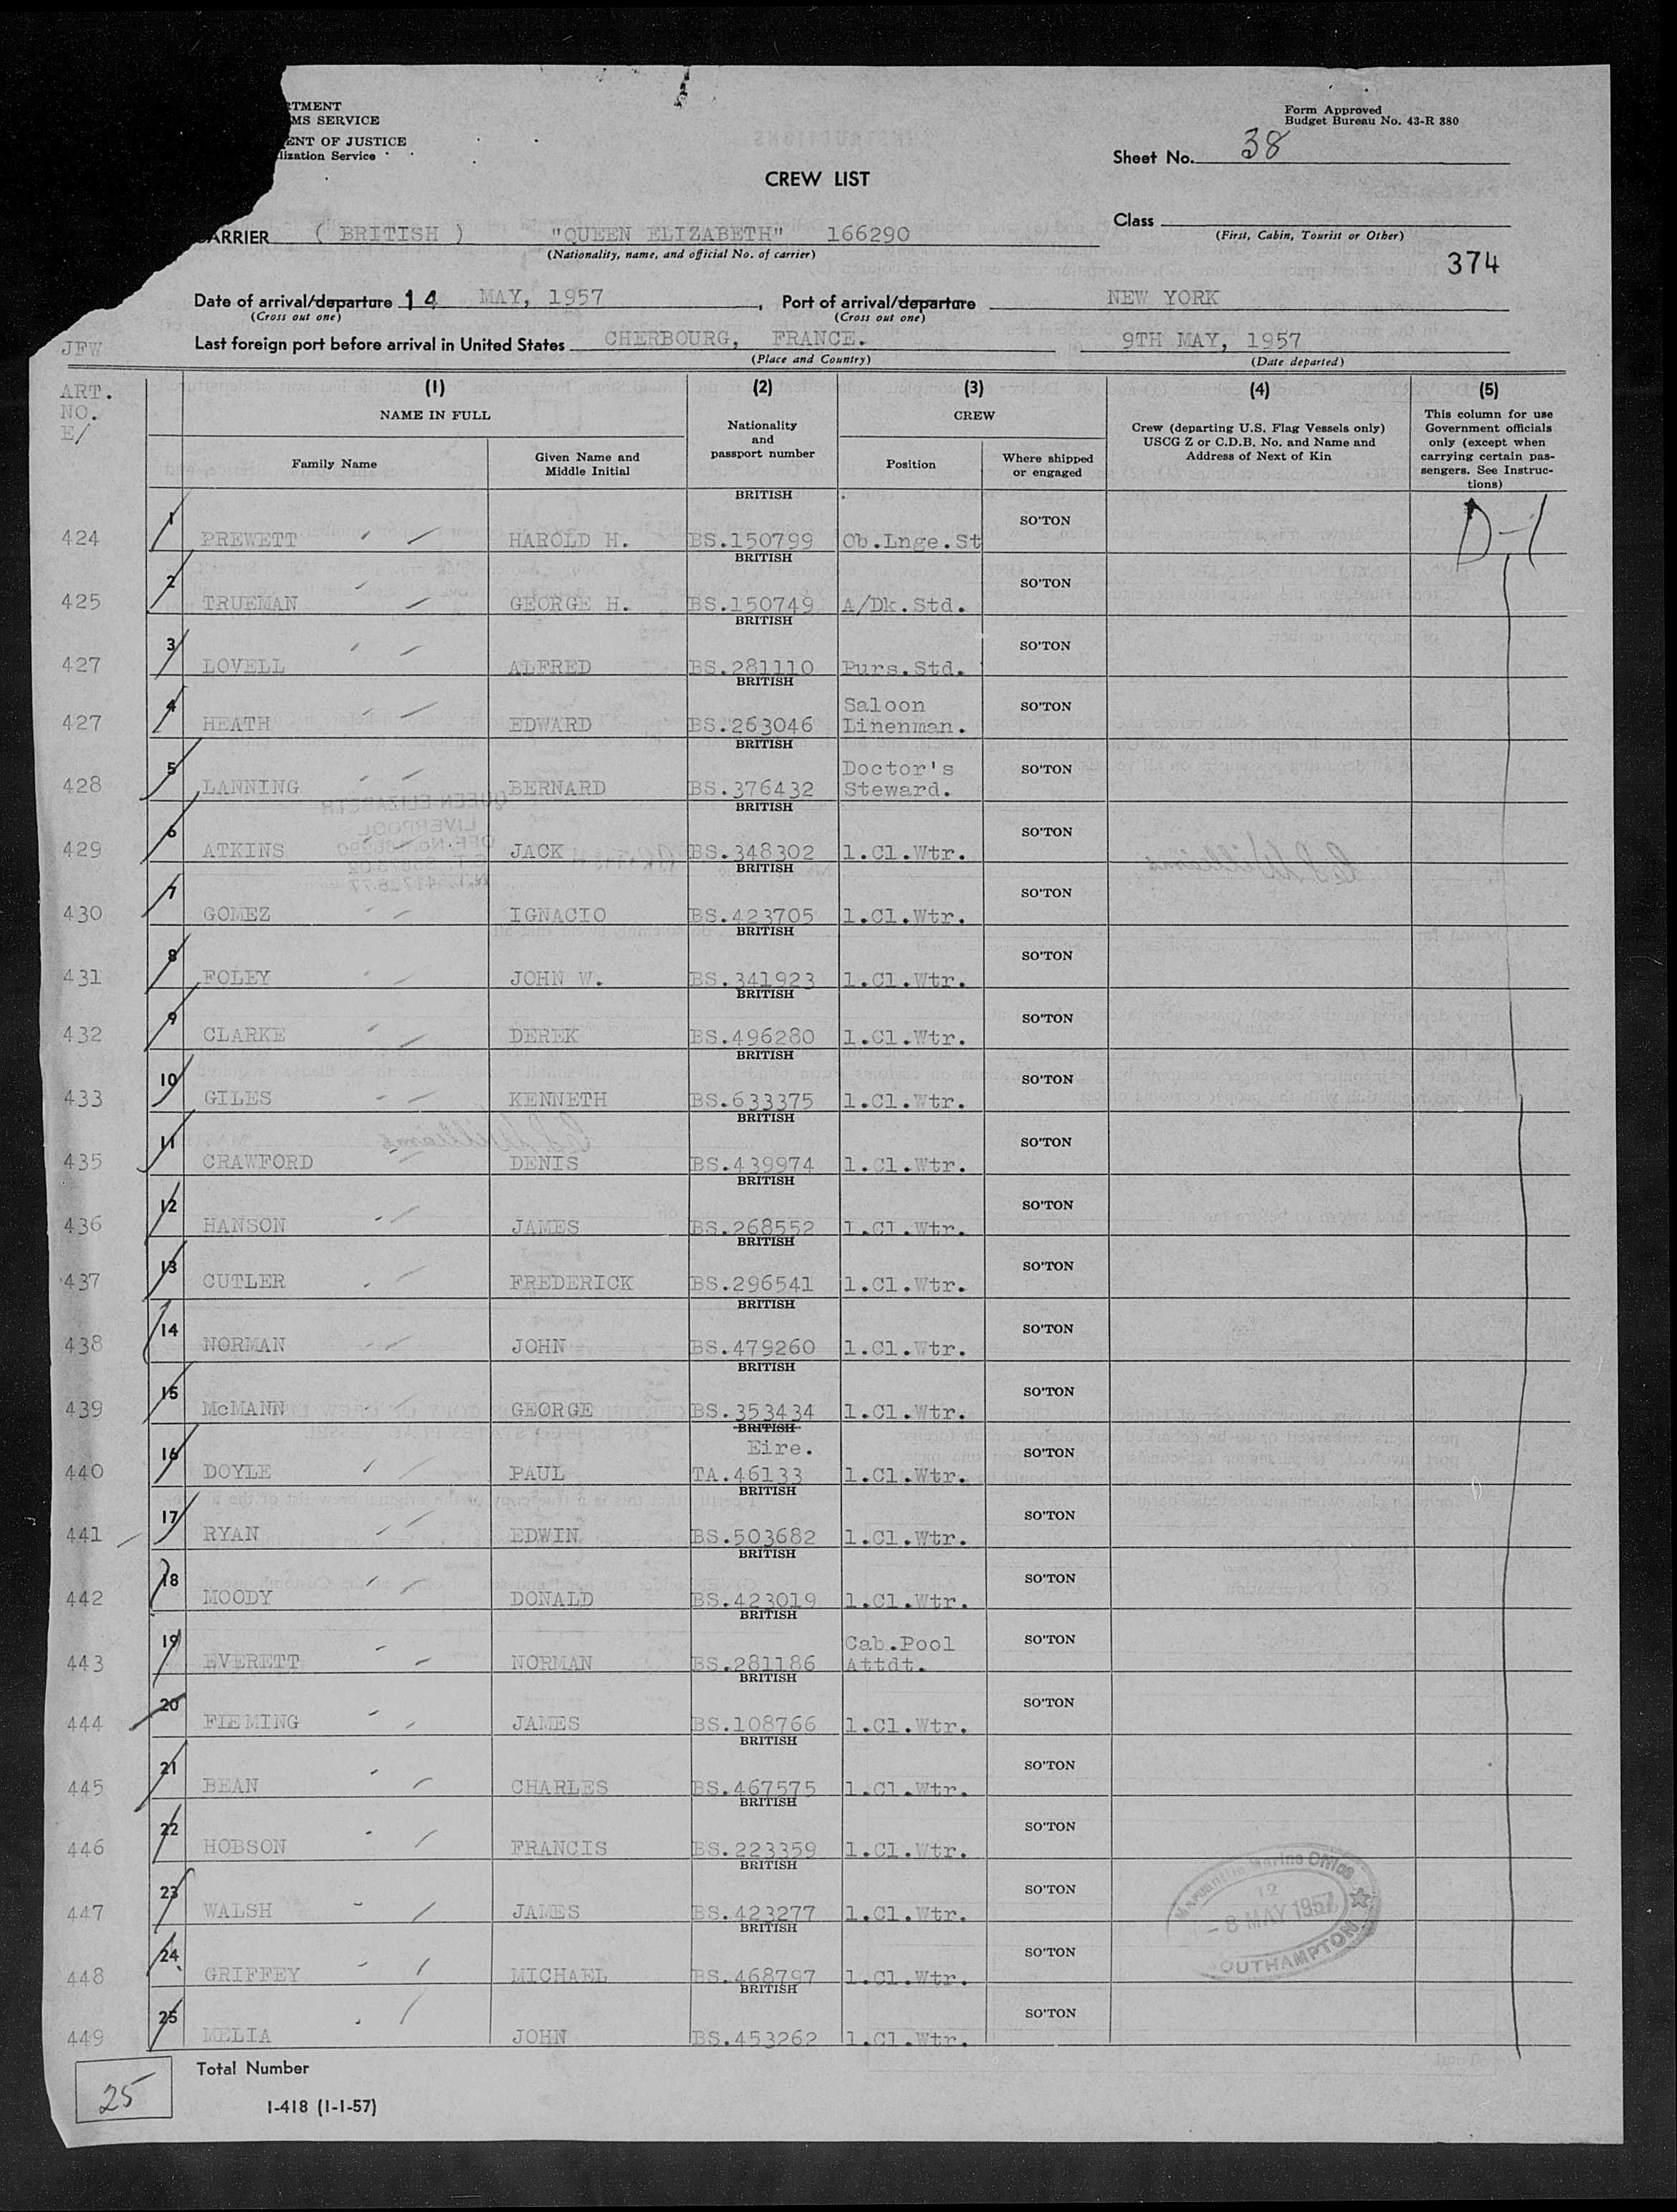 RTMENT
MS SERVICE
ENT OF JUSTICE
lization Service
Form Approved
Budget Bureau No. 43-R 380
Sheet No. 38
CREW LIST
Class
(First, Cabin, Tourist or Other)
ARRIER ( BRITISH ) "QUEEN ELIZABETH" 166290
(Nationality, name, and official No. of carrier)
374
Date of arrival/departure 14 MAY, 1957, Port of arrival/departure NEW YORK
(Cross out one) (Cross out one)
JFW
Last foreign port before arrival in United States CHERBOURG, FRANCE. 9TH MAY, 1957
(Place and Country) (Date departed)
ART.
NO.
E/
(1) (2) (3) (4) (5)
NAME IN FULL
Family Name
Given Name and
Middle Initial
Nationality
and
passport number
CREW
Position
Where shipped
or engaged
Crew (departing U.S. Flag Vessels only)
USCG Z or C.D.B. No. and Name and
Address of Next of Kin
This column for use
Government officials
only (except when
carrying certain pas-
sengers. See Instruc-
tions)
D-1
BRITISH
424 1 PREWETT HAROLD H. BS.150799 Ob.Lnge.St SO'TON
BRITISH
425 2 TRUEMAN GEORGE H. BS.150749 A/Dk.Std. SO'TON
BRITISH
427 3 LOVELL ALFRED BS.281110 Purs.Std. SO'TON
BRITISH
427 4 HEATH EDWARD BS.263046 Saloon Linenman. SO'TON
BRITISH
428 5 LANNING BERNARD BS.376432 Doctor's Steward. SO'TON
BRITISH
429 6 ATKINS JACK BS.348302 1.Cl.Wtr. SO'TON
BRITISH
430 7 GOMEZ IGNACIO BS.423705 1.Cl.Wtr. SO'TON
BRITISH
431 8 FOLEY JOHN W. BS.341923 1.Cl.Wtr. SO'TON
BRITISH
432 9 CLARKE DEREK BS.496280 1.Cl.Wtr. SO'TON
BRITISH
433 10 GILES KENNETH BS.633375 1.Cl.Wtr. SO'TON
BRITISH
435 11 CRAWFORD DENIS BS.439974 1.Cl.Wtr. SO'TON
BRITISH
436 12 HANSON JAMES BS.268552 1.Cl.Wtr. SO'TON
BRITISH
437 13 CUTLER FREDERICK BS.296541 1.Cl.Wtr. SO'TON
BRITISH
438 14 NORMAN JOHN BS.479260 1.Cl.Wtr. SO'TON
BRITISH
439 15 McMANN GEORGE BS.353434 1.Cl.Wtr. SO'TON
BRITISH
Eire.
440 16 DOYLE PAUL TA.46133 1.Cl.Wtr. SO'TON
BRITISH
441 17 RYAN EDWIN BS.503682 1.Cl.Wtr. SO'TON
BRITISH
442 18 MOODY DONALD BS.423019 1.Cl.Wtr. SO'TON
BRITISH
443 19 EVERETT NORMAN BS.281186 Cab.Pool Attdt. SO'TON
BRITISH
444 20 FLEMING JAMES BS.108766 1.Cl.Wtr. SO'TON
BRITISH
445 21 BEAN CHARLES BS.467575 1.Cl.Wtr. SO'TON
BRITISH
446 22 HOBSON FRANCIS BS.223359 1.Cl.Wtr. SO'TON
BRITISH
447 23 WALSH JAMES BS.423277 1.Cl.Wtr. SO'TON
BRITISH
448 24 GRIFFEY MICHAEL BS.468797 1.Cl.Wtr. SO'TON
BRITISH
449 25 MELIA JOHN BS.453262 1.Cl.Wtr. SO'TON
Mercantile Marine Office
12
- 8 MAY 1957
OUTHAMPTON
25 Total Number
I-418 (1-1-57)